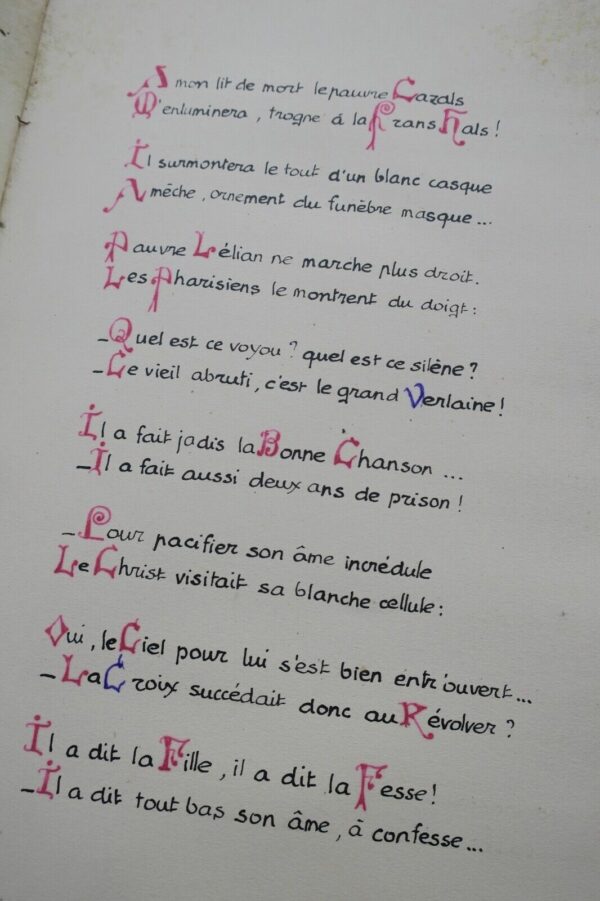 A mon lit de mort le pauvre Cazals
M'enluminera, trogne à la Frans Hals !
Il surmontera le tout d'un blanc casque
A mêche, ornement du funèbre masque...
Pauvre Lélian ne marche plus droit.
Les Pharisiens le montrent du doigt :
- Quel est ce voyou ? quel est ce silène ?
- Le vieil abruti, c'est le grand Verlaine !
Il a fait jadis la Bonne Chanson ...
- Il a fait aussi deux ans de prison !
- Pour pacifier son âme incrédule
Le Christ visitait sa blanche cellule :
Oui, le Ciel pour lui s'est bien entr'ouvert...
- La Croix succédait donc au Révolver ?
Il a dit la Fille, il a dit la Fesse !
- Il a dit tout bas son âme, à confesse...